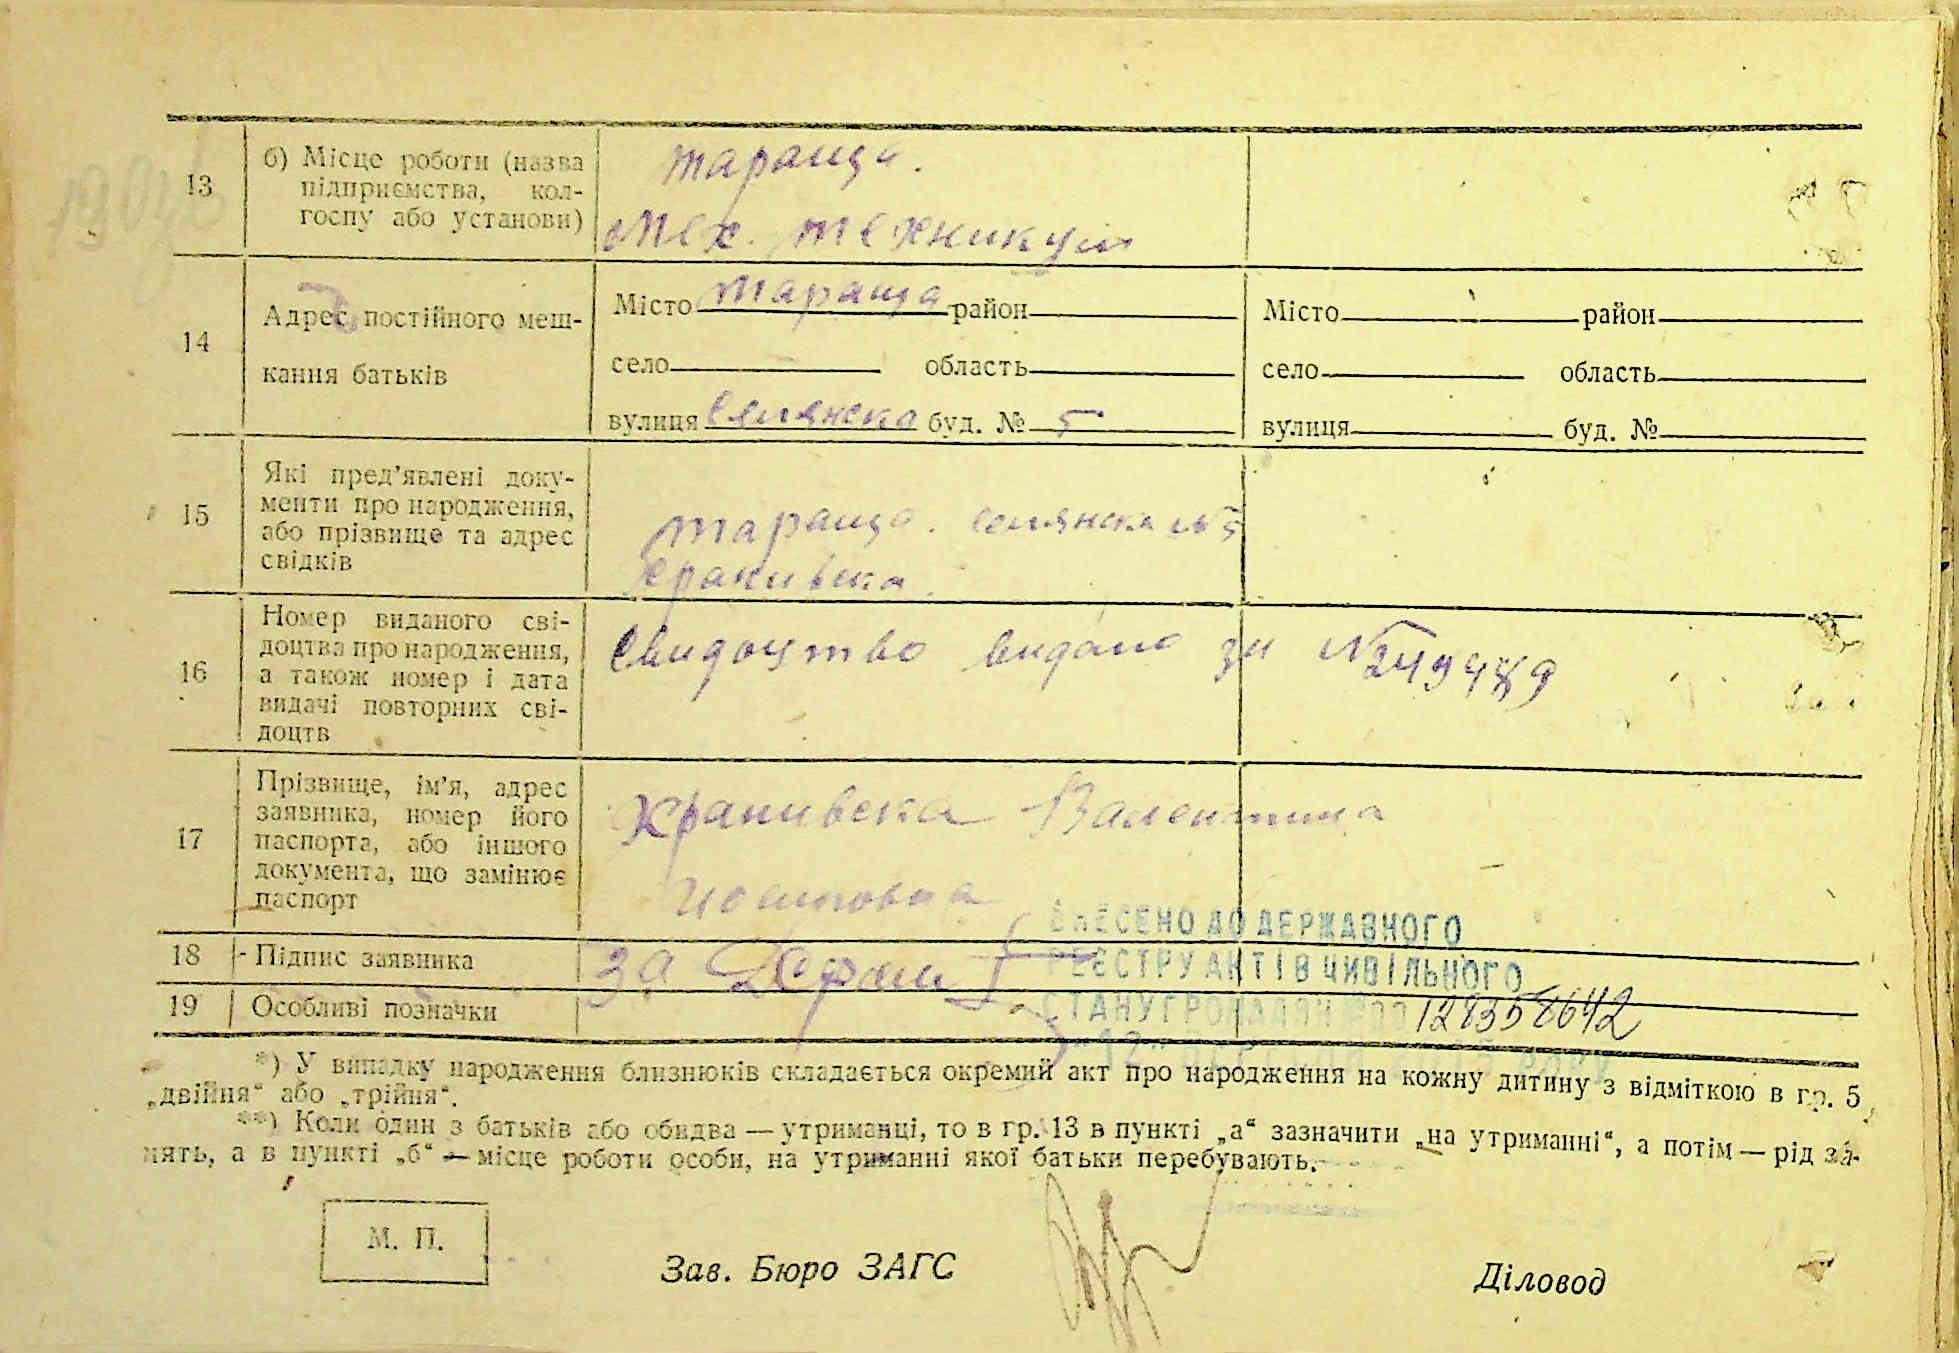 13
б) Місце роботи (назва
підприємства, кол-
госпу або установи)
Тараща.
Мех. технікум
14
Адрес постійного меш-
кання батьків
Місто Тараща район
село область
вулиця Селянска буд. № 5
Місто район
село область
вулиця буд. №
15
Які пред'явлені доку-
менти про народження,
або прізвище та адрес
свідків
Тараща. Селянска №5
Крапивска
16
Номер виданого сві-
доцтва про народження,
а також номер і дата
видачі повторних сві-
доцтв
Свидоцтво видано за №
17
Прізвище, ім'я, адрес
заявника, номер його
паспорта, або іншого
документа, що замінює
паспорт
Крапивска Валентина
18
Підпис заявника
За
19
Особливі позначки
ВНЕСЕНО ДО ДЕРЖАВНОГО
РЕЄСТРУ АКТІВ ЦИВІЛЬНОГО
СТАНУ ГРОМАДЯН
*) У випадку народження близнюків складається окремий акт про народження на кожну дитину з відміткою в гр. 5
„двійня“ або „трійня“.
**) Коли один з батьків або обидва — утриманці, то в гр. 13 в пункті „а“ зазначити „на утриманні“, а потім — рід за-
нять, а в пункті „б“ — місце роботи особи, на утриманні якої батьки перебувають.
М. П.
Зав. Бюро ЗАГС
Діловод